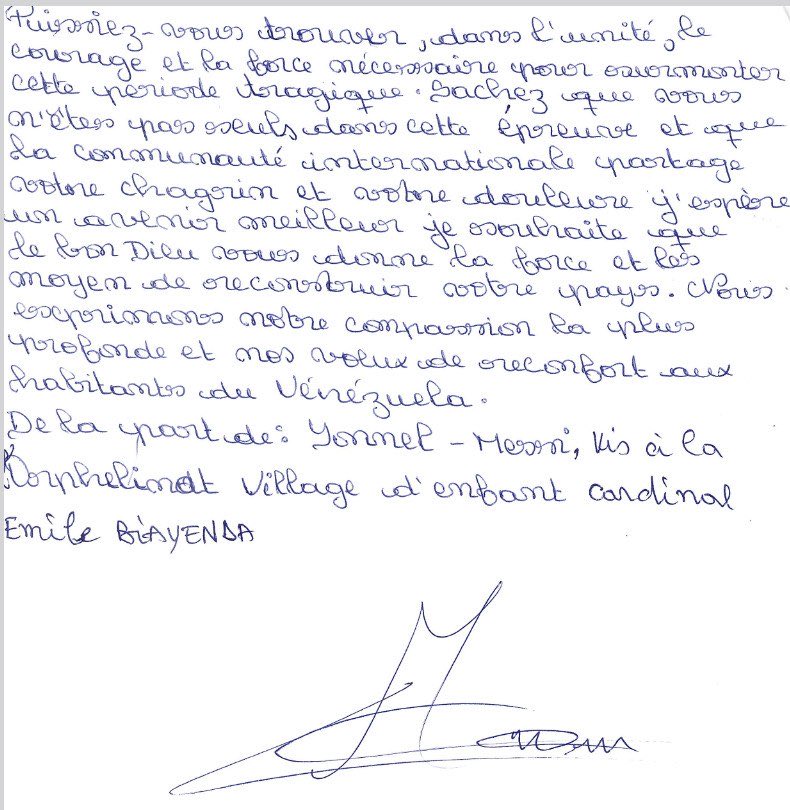 Puissiez-vous trouver, dans l'unité, le
courage et la force nécessaire pour surmonter
cette période tragique. Sachez que vous
n'êtes pas seuls dans cette épreuve et que
la communauté internationale partage
votre chagrin et votre douleure j'espère
un avenir meilleur je souhaite que
le bon Dieu vous donne la force et les
moyen de reconstruir votre pays. Nous
exprimons notre compassion la plus
profonde et nos vœux de reconfort aux
habitants du Vénézuela.
De la part de: Yonnel - Messi, vis à la
l'orphelinat village d'enfant cardinal
Emile BIAYENDA